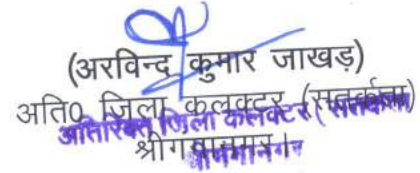 (अरविन्द कुमार जाखड़)
अति0 जिला कलक्टर (सतर्कता)
अतिरिक्त जिला कलक्टर (सतर्कता)
श्रीगंगानगर।
श्रीगंगानगर